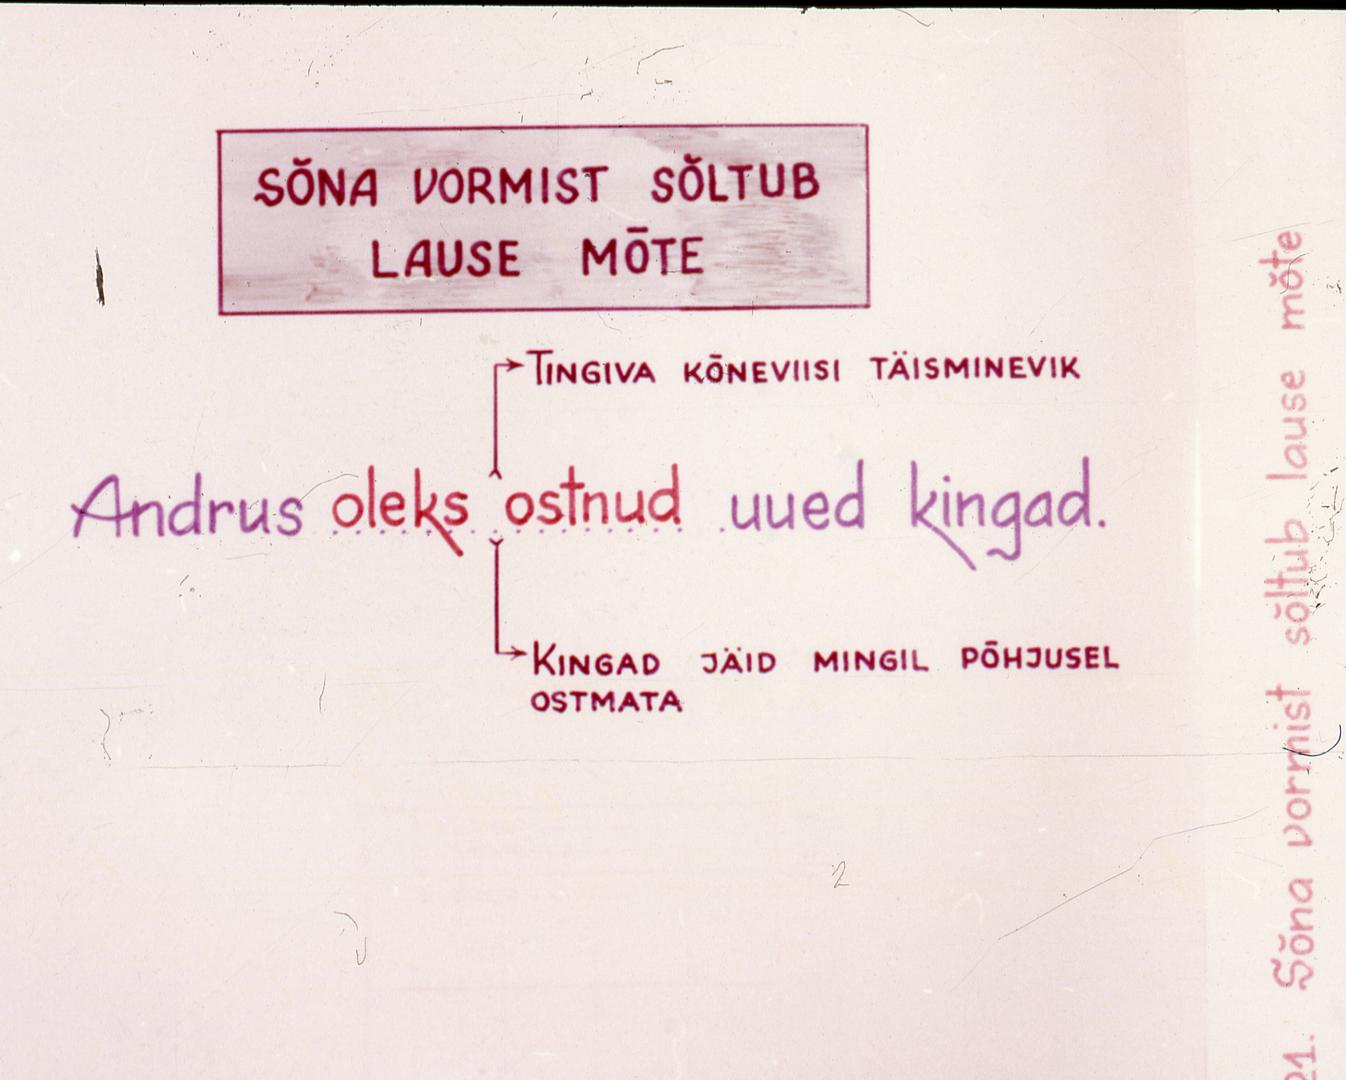 SŎNA VORMIST SŎLTUB
LAUSE MŌTE
TINGIVA KŌNEVIISI TÄISMINEVIK
Andrus oleks ostnud uued kingad.
KINGAD JÄID MINGIL PŌHJUSEL
OSTMATA
21. Sŏna vormist sŏltub lause mŏte